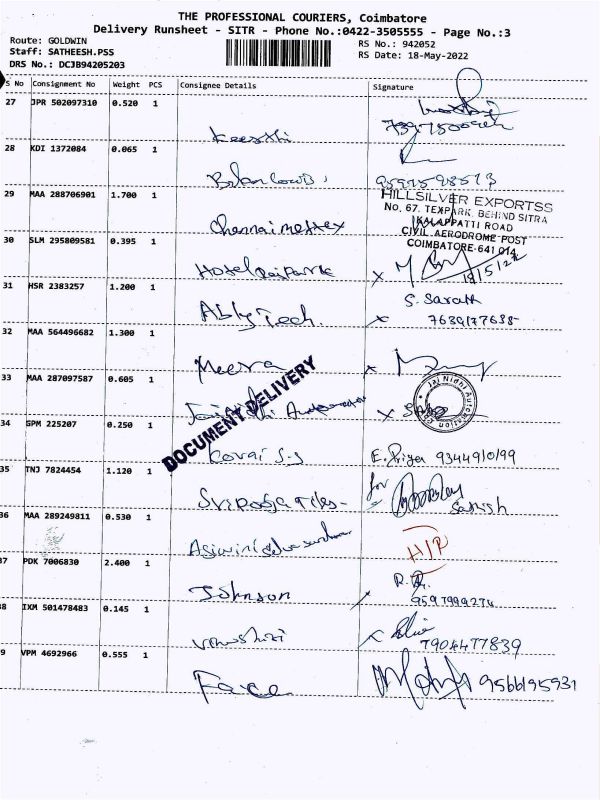 THE PROFESSIONAL COURIERS, Coimbatore
Delivery Runsheet - SITR - Phone No.:0422-3505555 - Page No.:3
Route: GOLDWIN
Staff: SATHEESH.PSS
DRS No.: DCJB94205203
RS No.: 942052
RS Date: 18-May-2022
S No Consignment No Weight PCS Consignee Details Signature
27 JPR 502097310 0.520 1
28 KDI 1372084 0.065 1
29 MAA 288706901 1.700 1 Chennai mettex
HILLSILVER EXPORTSS
No. 67, TEXPARK, BEHIND SITRA
KALAPPATTI ROAD
CIVIL AERODROME POST
COIMBATORE-641 014
30 SLM 295809581 0.395 1 Hotel Rajpark
18/5/22
31 HSR 2383257 1.200 1 Ably Tech.
S. Sarath
7639177638
32 MAA 564496682 1.300 1 Meera
33 MAA 287097587 0.605 1
Jai Nidhi Automation
Coimbatore
DOCUMENT DELIVERY
34 GPM 225207 0.250 1 Kovai S.S
E. Priya 9344910199
35 TNJ 7824454 1.120 1 Sri Pooja Tiles
for
Sathish
36 MAA 289249811 0.530 1
H/P
37 PDK 7006830 2.400 1 Johnson
9597999274
38 IXM 501478483 0.145 1
7904477839
39 VPM 4692966 0.555 1 Face
9566195931